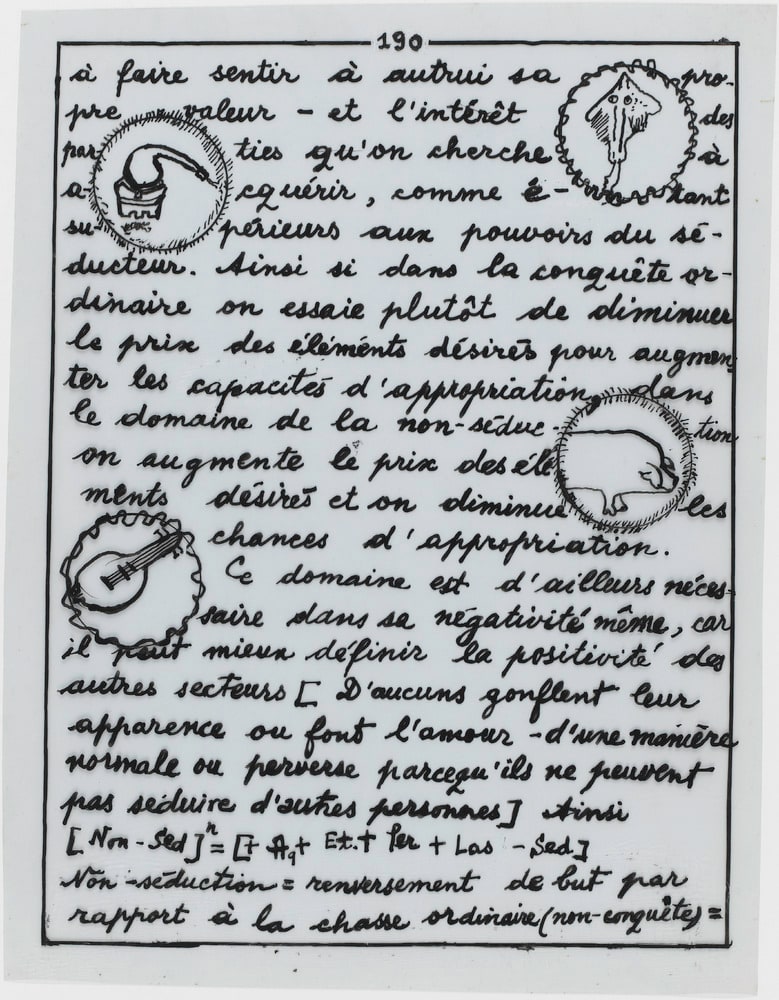 190
à faire sentir à autrui sa pro-
pre valeur - et l'intérêt des
par ties qu'on cherche à
a- cquérir, comme é- tant
su- périeurs aux pouvoirs du sé-
ducteur. Ainsi si dans la conquête or-
dinaire on essaie plutôt de diminuer
le prix des éléments désirés pour augmen-
ter les capacités d'appropriation, dans
le domaine de la non-séduc- tion
on augmente le prix des élé
ments désirés et on diminue les
chances d'appropriation.
Ce domaine est d'ailleurs néces-
saire dans sa négativité même, car
il peut mieux définir la positivité des
autres secteurs [ D'aucuns gonflent leur
apparence ou font l'amour - d'une manière
normale ou perverse parcequ'ils ne peuvent
pas séduire d'autres personnes ] Ainsi
[ Non-Sed ]ⁿ = [+ Aq + Et. + Per + Las - Sed ]
Non-séduction = renversement de but par
rapport à la chasse ordinaire (non-conquête) =